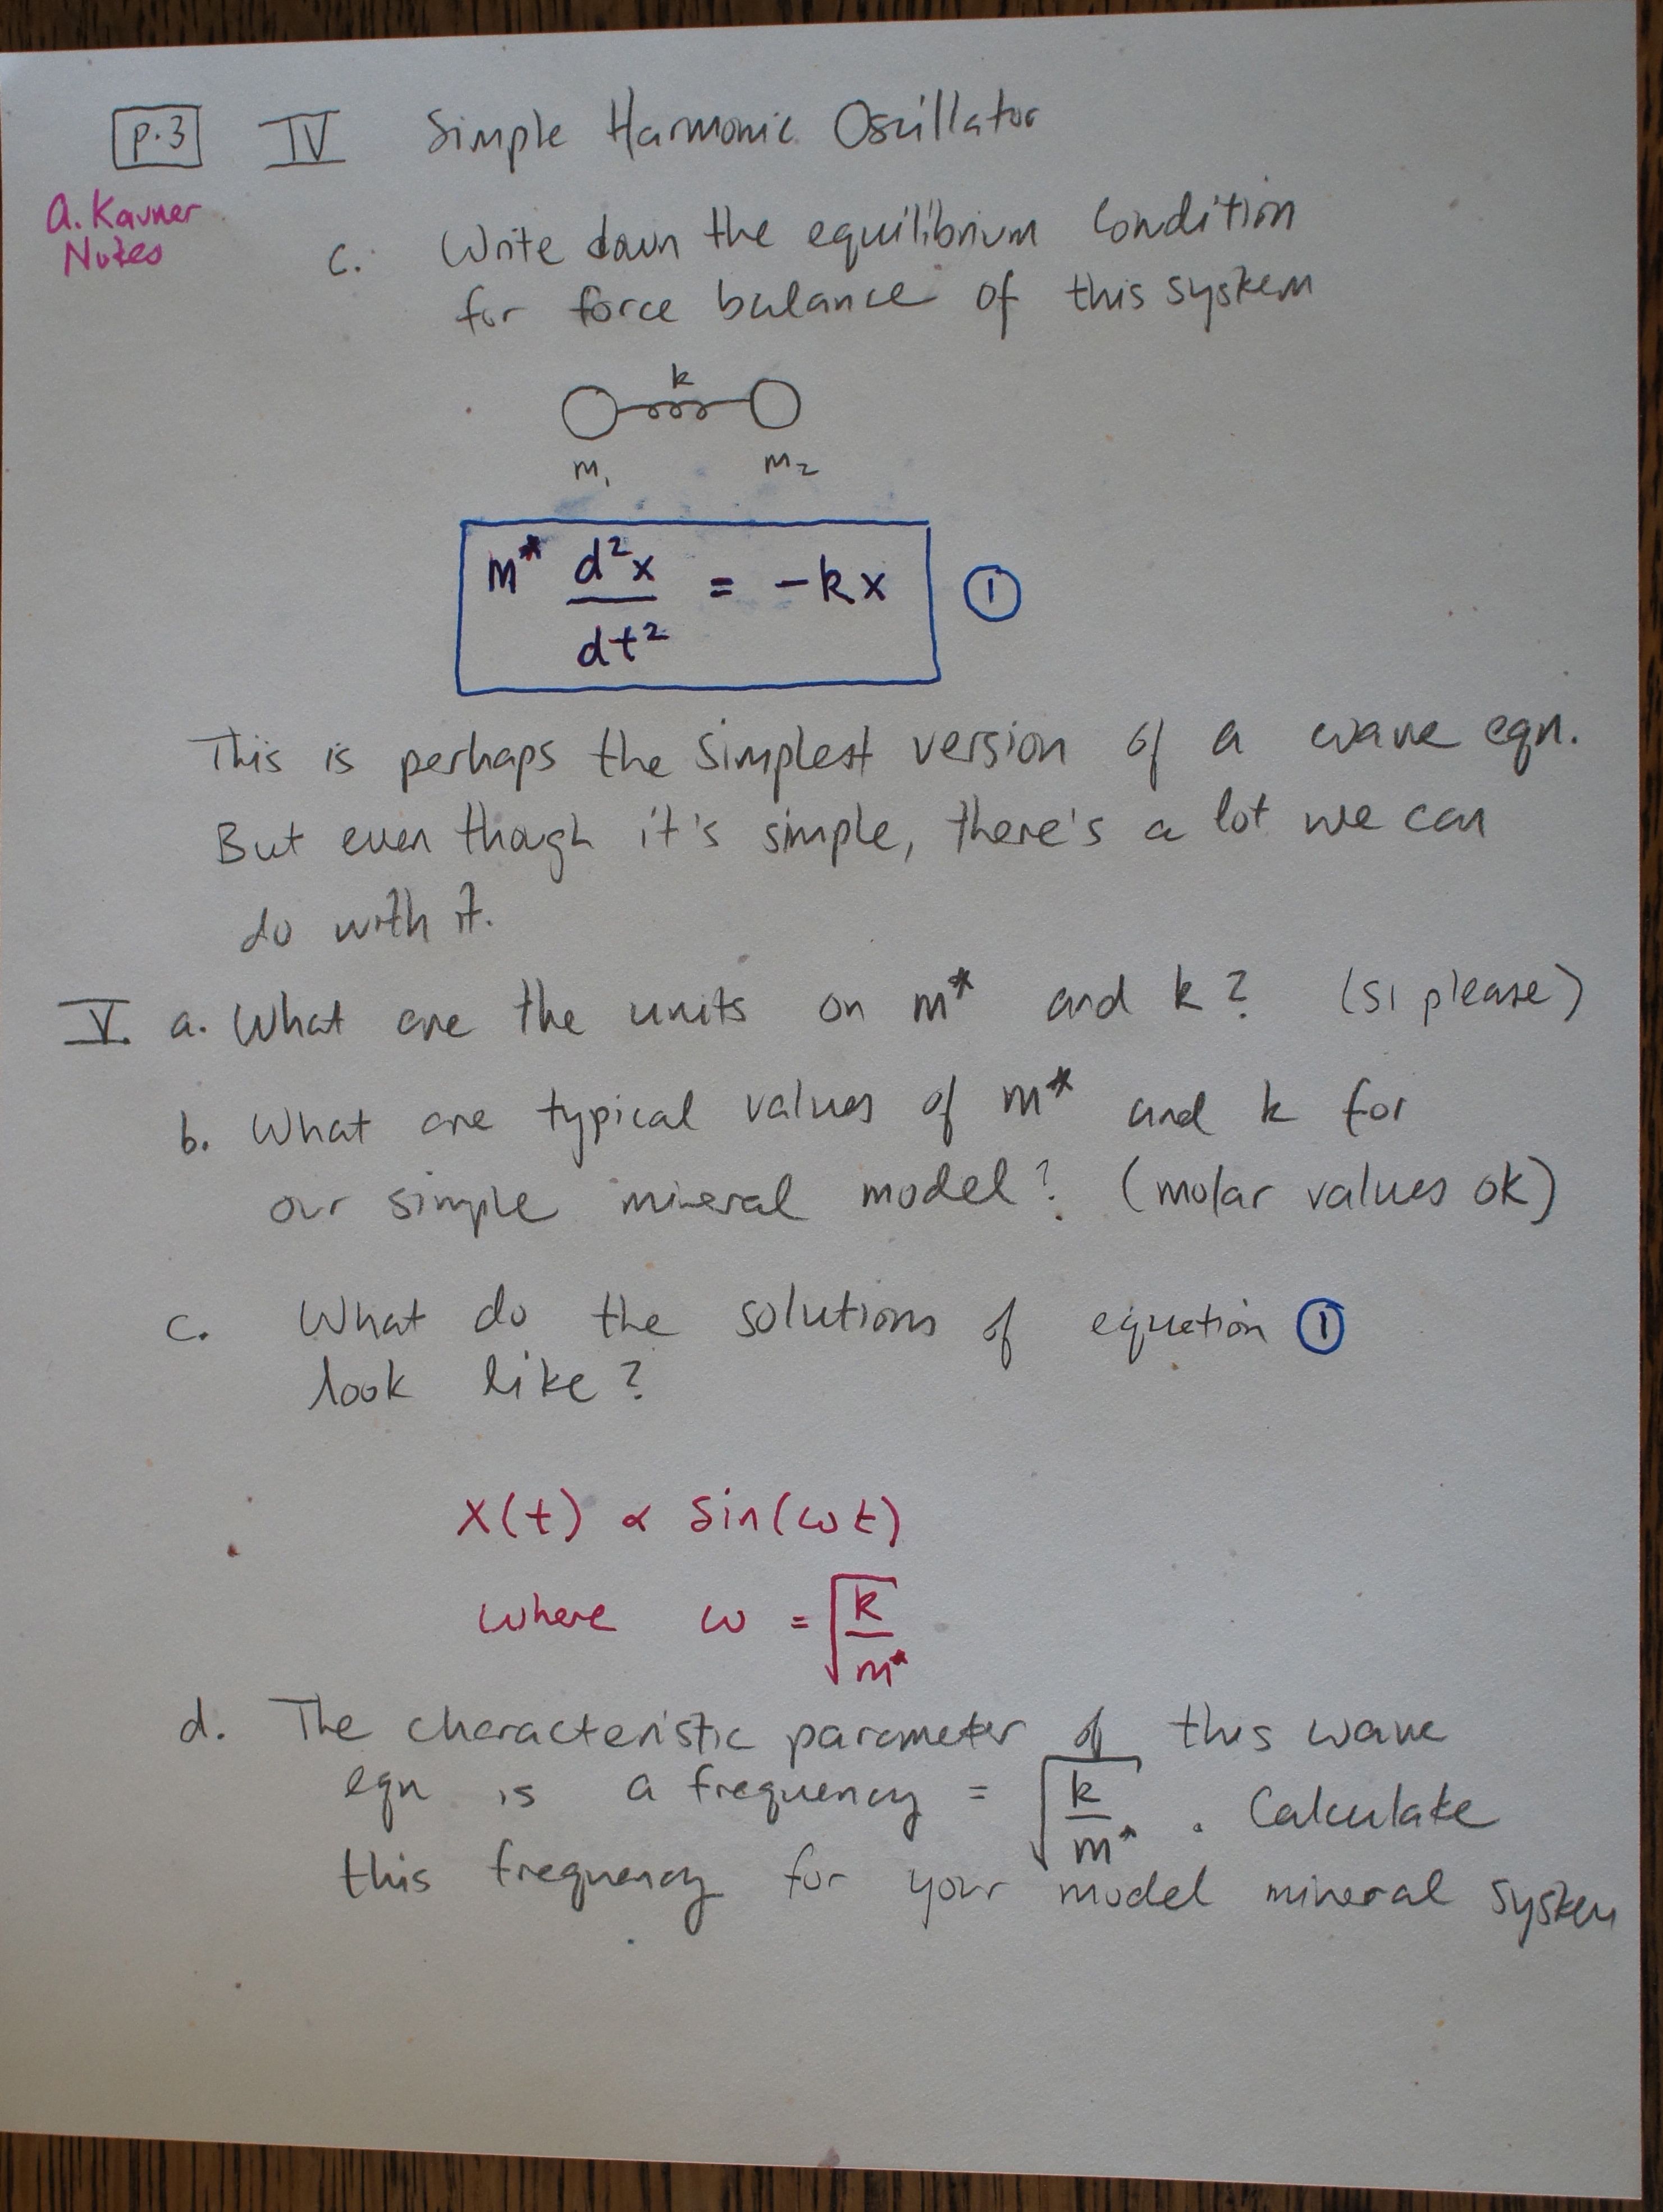 p.3 IV Simple Harmonic Oscillator
A. Kavner
Notes
c. Write down the equilibrium condition
for force balance of this system
k
m₁ m₂
m* d²x/dt² = -kx ①
This is perhaps the simplest version of a wave eqn.
But even though it's simple, there's a lot we can
do with it.
V. a. What are the units on m* and k? (SI please)
b. What are typical values of m* and k for
our simple mineral model? (molar values ok)
c. What do the solutions of equation ①
look like?
x(t) ∝ sin(ωt)
where ω = √(k/m*)
d. The characteristic parameter of this wave
eqn is a frequency = √(k/m*). Calculate
this frequency for your model mineral system